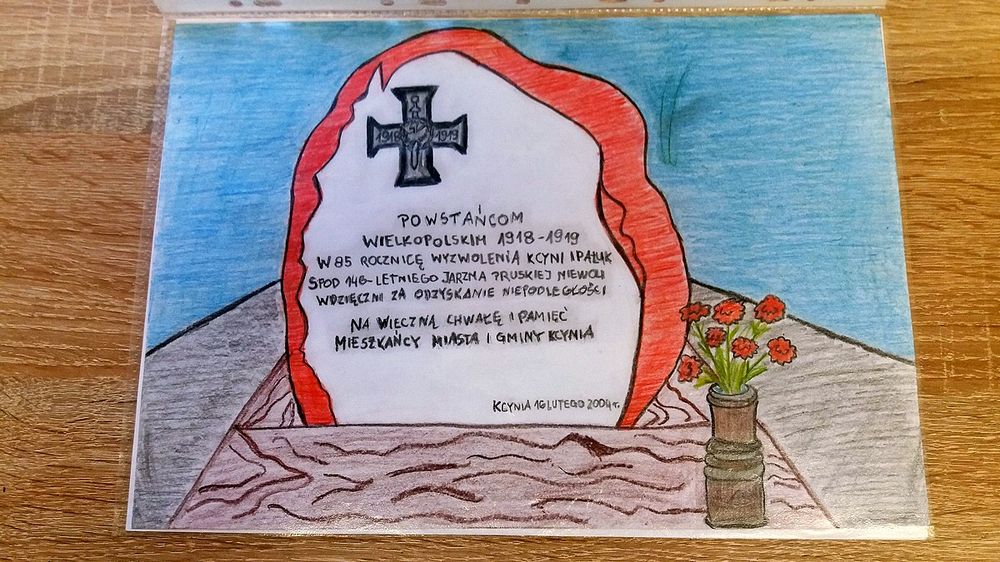 1918 1919
POWSTAŃCOM
WIELKOPOLSKIM 1918-1919
W 85 ROCZNICĘ WYZWOLENIA KCYNI I PAŁUK
SPOD 146-LETNIEGO JARZMA PRUSKIEJ NIEWOLI
WDZIĘCZNI ZA ODZYSKANIE NIEPODLEGŁOŚCI
NA WIECZNĄ CHWAŁĘ I PAMIĘĆ
MIESZKAŃCY MIASTA I GMINY KCYNIA
KCYNIA 1 LUTEGO 2004 r.